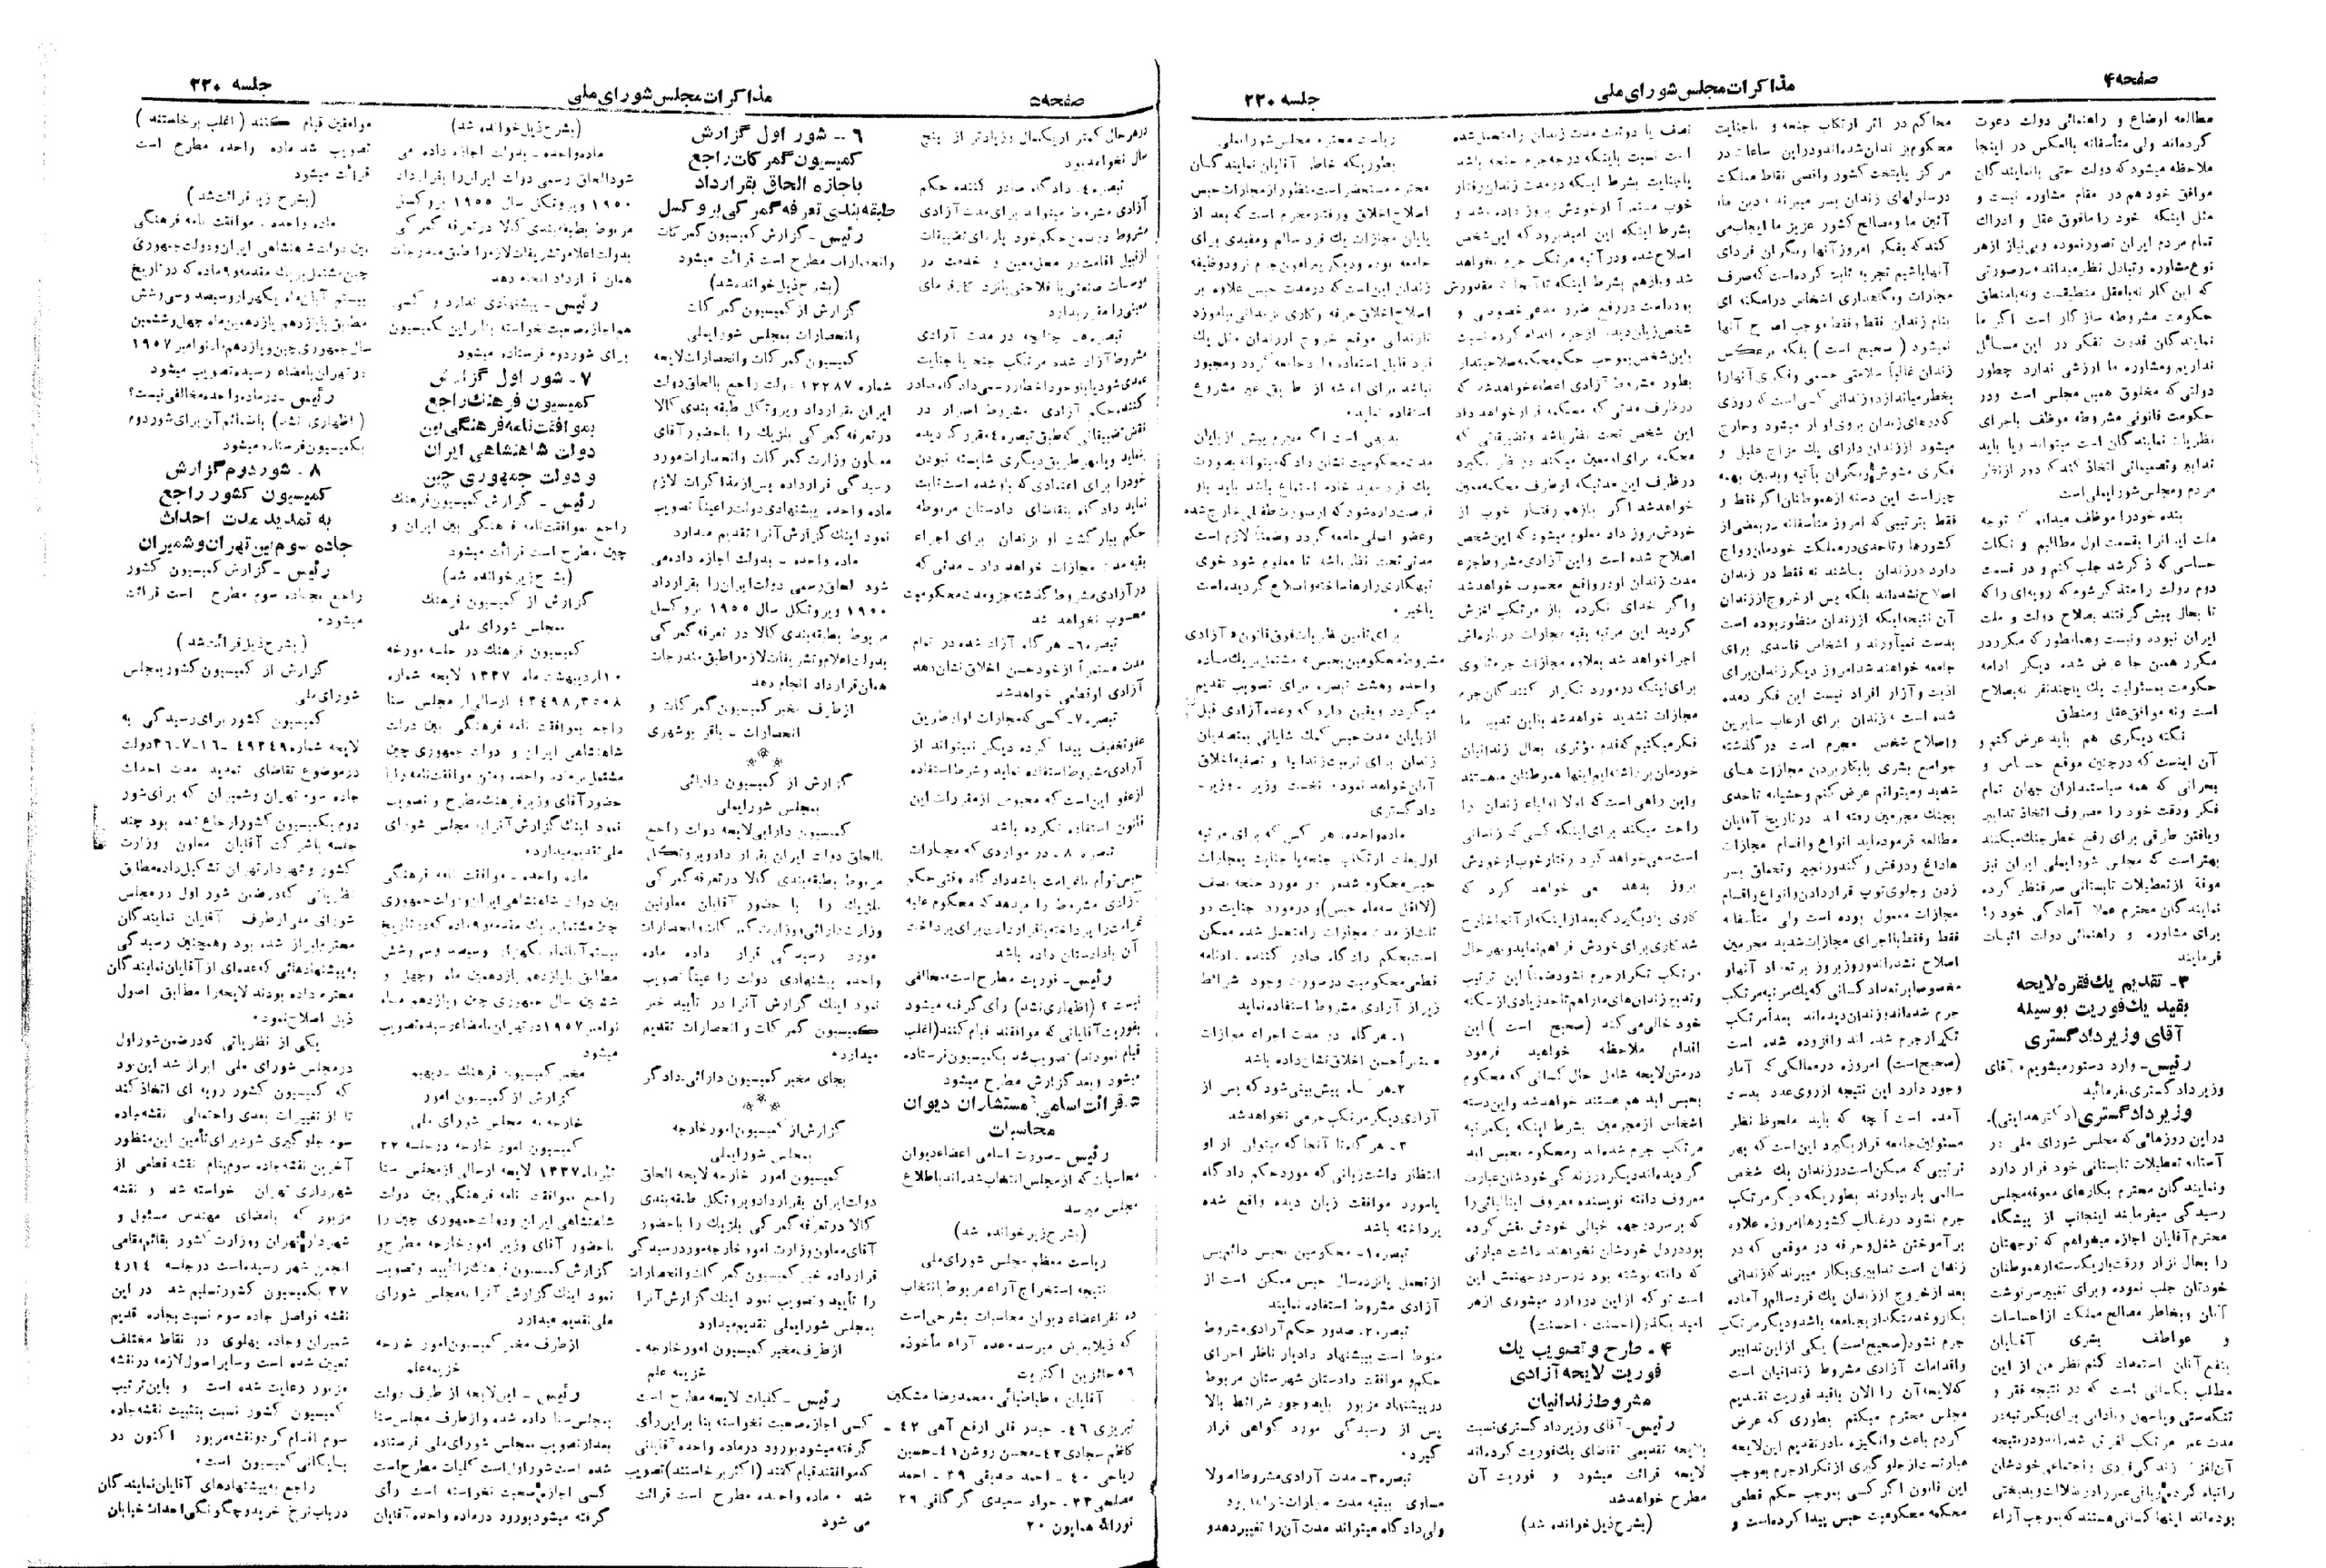 صفحه ۴
مذاکرات مجلس شورای ملی
جلسه ۲۲۰
مطالعه اوضاع و راهنمائی دولت دعوت
کرده‌اند ولی متأسفانه بالعکس در اینجا
ملاحظه میشود که دولت حتی بانمایندگان
موافق خود هم در مقام مشاوره نیست و
مثل اینکه خود را مافوق عقل و ادراك
تمام مردم ایران تصور نموده و بی‌نیاز از هر
نوع مشاوره و تبادل نظر میداند در صورتی
که این کار نه باعقل منطبقست و نه بامنطق
حکومت مشروطه سازگار است اگر ما
نمایندگان قدرت تفکر در این مسائل
نداریم و مشاوره ما ارزشی ندارد چطور
دولتی که مخلوق همین مجلس است و در
حکومت قانونی مشروطه موظف باجرای
نظریات نمایندگان است میتواند و یا باید
تدابیر و تصمیماتی اتخاذ کند که دور از نظر
مردم و مجلس شورایملی است
بنده خود را موظف میدانم که توجه
ملت ایران را بقسمت اول مطالبم و نکات
حساسی که ذکر شد جلب کنم و در قسمت
دوم دولت را متذکر شوم که رویه‌ای را که
تا بحال پیش گرفتند بصلاح دولت و ملت
ایران نبوده و نیست و همانطور که مکرر در
مکرر همین جا عرض شده دیگر ادامه
حکومت بمسئولیت یك یا چند نفر نه بصلاح
است و نه موافق عقل و منطق
نکته دیگری هم باید عرض کنم و
آن اینست که در چنین موقع حساس و
بحرانی که همه سیاستمداران جهان تمام
فکر و دقت خود را مصروف اتخاذ تدابیر
و یافتن طرقی برای رفع خطر جنك میکنند
بهتر است که مجلس شورایملی ایران نیز
موقة از تعطیلات تابستانی صرفنظر کرده
نمایندگان محترم عملا آمادگی خود را
برای مشاوره و راهنمائی دولت اثبات
فرمایند
۳- تقدیم یك فقره لایحه
بقید یك فوریت بوسیله
آقای وزیر دادگستری
رئیس- وارد دستور میشویم آقای
وزیر دادگستری بفرمائید
وزیر دادگستری (دکتر هدایتی)-
در این روزهائی که مجلس شورای ملی در
آستانه تعطیلات تابستانی خود قرار دارد
و نمایندگان محترم بکارهای معوقه مجلس
رسیدگی میفرمایند اینجانب از پیشگاه
محترم آقایان اجازه میخواهم که توجهتان
را بحال نزار و رقت بار یکدسته از هموطنان
خودتان جلب نموده و برای تغییر سرنوشت
آنان و بخاطر مصالح مملکت از احساسات
و عواطف بشری آقایان
بنفع آنان استمداد کنم نظر من از این
مطلب بکسانی است که در نتیجه فقر و
تنگدستی و یا جهل و نادانی برای یکمرتبه در
مدت عمر مرتکب لغزش شده‌اند و در نتیجه
آن لغزش زندگی فردی و اجتماعی خودشان
را تباه کرده و باقی عمر را در ضلالت و بدبختی
بوده‌اند اینها کسانی هستند که بموجب آراء
محاکم در اثر ارتکاب جنحه و یا جنایت
محکوم بزندان شده‌اند و در این ساعات در
مرکز پایتخت کشور و اقصی نقاط مملکت
در سلولهای زندان بسر میبرند دین ما،
آئین ما و مصالح کشور عزیز ما ایجاب می
کند که بفکر امروز آنها و نگران فردای
آنها باشیم تجربه ثابت کرده است که صرف
مجازات و نگاهداری اشخاص در امکنه‌ای
بنام زندان فقط و فقط موجب اصلاح آنها
نمیشود (صحیح است) بلکه برعکس
زندان غالباً سلامتی جسمی و فکری آنها را
بخطر میاندازد زندانی کسی است که روزی
که درهای زندان بروی او باز میشود و خارج
میشود از زندان دارای یك مزاج علیل و
فکری مشوش و نگران بآتیه و بدبین بهمه
چیز است این دسته از هموطنان اگر فقط و
فقط بترتیبی که امروز متأسفانه در بعضی از
کشورها و تاحدی در مملکت خودمان رواج
دارد در زندان باشند نه فقط در زندان
اصلاح نشده‌اند بلکه پس از خروج از زندان
آن نتیجه اینکه از زندان منظور بوده است
بدست نمیآورند و اشخاص فاسدی برای
جامعه خواهند شد امروز دیگر زندان برای
اذیت و آزار افراد نیست این فکر دهه
شده است، زندان برای ارعاب سایرین
و اصلاح شخص مجرم است در گذشته
جوامع بشری بابکار بردن مجازات های
شدید و میتوانم عرض کنم وحشیانه تاحدی
بجنك مجرمین رفته‌اند در تاریخ آقایان
مطالعه فرموده‌اید انواع و اقسام مجازات
ها داغ و درفش و کند و زنجیر و شماق بسر
زدن و جلوی توپ قرار دادن و انواع و اقسام
مجازات معمول بوده است ولی متأسفانه
فقط و فقط با اجرای مجازات شدید مجرمین
اصلاح نشده‌اند و روز بروز بر تعداد آنها و
مخصوصاً بر تعداد کسانی که یك مرتبه مرتکب
جرم شده‌اند و زندان دیده‌اند بعداً مرتکب
تکرار جرم شده‌اند و افزوده شده است
(صحیح است) امروزه در ممالکی که آمار
وجود دارد این نتیجه از روی عدد بدست
آمده است آنچه که باید ملحوظ نظر
مسئولین جامعه قرار بگیرد این است که بهر
ترتیبی که ممکن است در زندان یك شخص
سالمی بار بیاورند بطوریکه دیگر مرتکب
جرم نشود در غالب کشورها امروزه علاوه
بر آموختن شغل و حرفه در موقعی که در
زندان است تدابیری بکار میبرند که زندانی
بعد از خروج از زندان یك فرد سالم و آماده
بکار و خدمتگذار بجامعه باشد و دیگر مرتکب
جرم نشود (صحیح است) یکی از این تدابیر
و اقدامات آزادی مشروط زندانیان است
که لایحه آن را الان باقید فوریت تقدیم
مجلس محترم میکنم بطوری که عرض
کردم باعث و انگیزه ما در تقدیم این لایحه
عبارتست از جلوگیری از تکرار جرم بموجب
این قانون اگر کسی بموجب حکم قطعی
محکمه محکومیت حبس پیدا کرده است و
نصف یا دوثلث مدت زندان را متحمل شده
است نسبت باینکه درجه جرم جنحه باشد
یا جنایت بشرط اینکه در مدت زندان رفتار
خوب مستمراً از خودش بروز داده شد و
بشرط اینکه این امید برود که این شخص
اصلاح شده و در آتیه مرتکب جرم نخواهد
شد و باز هم بشرط اینکه تا آنجا که مقدورش
بوده است در رفع ضرر مدعی خصوصی و
شخص زیان دیده از جرم اقدام کرده نسبت
باین شخص بموجب حکم محکمه صلاحیتدار
بطور مشروط آزادی اعطاء خواهد شد که
در ظرف مدتی که محکمه قرار خواهد داد
این شخص تحت نظر باشد و تضییقاتی که
محکمه برای او معین میکند در نظر بگیرد
در ظرف این مدتیکه از طرف محکمه معین
خواهد شد اگر باز هم رفتار خوب از
خودش بروز داد معلوم میشود که این شخص
اصلاح شده است و این آزادی مشروط جزء
مدت زندان او در واقع محسوب خواهد شد
و اگر خدای نکرده باز مرتکب لغزش
گردید این مرتبه بقیه مجازات درباره‌اش
اجرا خواهد شد بعلاوه مجازات جرم ثانوی
برای اینکه در مورد تکرار کنندگان جرم
مجازات تشدید خواهد شد باین تدبیر ما
فکر میکنیم که قدم مؤثری بحال زندانیان
خودمان برداشته‌ایم اینها هموطنان ما هستند
و این راهی است که اولا اولیاء زندان را
راحت میکند برای اینکه کسی که زندانی
است سعی خواهد کرد رفتار خوب از خودش
بروز بدهد می خواهد کرد که
کاری یاد بگیرد که بعد از اینکه از آنجا خارج
شد کاری برای خودش فراهم نماید و بهر حال
مرتکب تکرار جرم نشود ضمناً این ترتیب
و تدبیر زندان‌های ما را هم تا حد زیادی از سکنه
خود خالی می کند (صحیح است) این
اقدام ملاحظه خواهید فرمود
در متن لایحه شامل حال کسانی که محکوم
بحبس ابد هم هستند خواهد شد و این دسته
اشخاص از مجرمین بشرط اینکه یکمرتبه
مرتکب جرم شده‌اند و محکوم بحبس ابد
گردیده‌اند دیگر در زندگی خودشان عبارت
معروف دانته نویسنده معروف ایتالیائی را
که بر سردر جهنم خیالی خودش نقش کرده
بود در دل خودشان نخواهند داشت عبارتی
که دانته نوشته بود در سردر جهنمش این
است تو که از این در وارد میشوی از هر
امید بگذر (احسنت، احسنت)
۴- طرح و تصویب یك
فوریت لایحه آزادی
مشروط زندانیان
رئیس- آقای وزیر دادگستری نسبت
بلایحه تقدیمی تقاضای یك فوریت کرده‌اند
لایحه قرائت میشود و فوریت آن
مطرح خواهد شد
(بشرح ذیل خوانده شد)
ریاست محترم مجلس شورایملی
بطوریکه خاطر آقایان نمایندگان
محترم مستحضر است منظور از مجازات حبس
اصلاح اخلاق و رفتار مجرم است که بعد از
پایان مجازات یك فرد سالم و مفیدی برای
جامعه بوده و دیگر پیرامون جرم نرود وظیفه
زندان این است که در مدت حبس علاوه بر
اصلاح اخلاق حرفه و کاری بزندانی بیاموزد
تا زندانی موقع خروج از زندان مثل یك
فرد قابل استفاده وارد جامعه گردد و مجبور
نباشد برای اعاشه از طریق غیر مشروع
استفاده نماید.
بدیهی است اگر مجرم پیش از پایان
مدت محکومیت نشان داد که بتواند بصورت
یك فرد مفید خادم اجتماع باشد باید باو
فرصت داده شود که از صورت طفیلی خارج شده
و عضو اصلی جامعه گردد و ضمناً لازم است
مدتی تحت نظر باشد تا معلوم شود خوی
تبهکاری را رها ساخته و اصلاح گردیده است
یا خیر.
برای تأمین نظریات فوق قانون «آزادی
مشروط محکومین بحبس» مشتمل بر یك ماده
واحده و هشت تبصره برای تصویب تقدیم
میگردد و یقین دارد که وعده آزادی قبل
از پایان مدت حبس کمك شایانی بمتصدیان
زندان برای تربیت زندانیان و تصفیه اخلاق
آنان خواهد نمود. نخست وزیر - وزیر-
دادگستری
ماده واحده، هر کس که برای مرتبه
اول بعلت ارتکاب جنحه یا جنایت بمجازات
حبس محکوم شده و در مورد جنحه نصف
(لااقل سه ماه حبس) و در مورد جنایت دو
ثلث از مدت مجازات را متحمل شده ممکن
است بحکم دادگاه صادر کننده دادنامه
قطعی محکومیت در صورت وجود شرائط
زیر از آزادی مشروط استفاده نماید
۱- هرگاه در مدت اجراء مجازات
مستمراً حسن اخلاق نشان داده باشد
۲- هرگاه پیش بینی شود که پس از
آزادی دیگر مرتکب جرمی نخواهد شد
۳- هرگاه تا آنجا که میتوان از او
انتظار داشت زیانی که مورد حکم دادگاه
یا مورد موافقت زیان دیده واقع شده
پرداخته باشد
تبصره ۱- محکومین بحبس دائم پس
از تحمل پانزده سال حبس ممکن است از
آزادی مشروط استفاده نمایند
تبصره ۲- صدور حکم آزادی مشروط
منوط است بپیشنهاد دادیار ناظر اجرای
حکم و موافقت دادستان شهرستان مربوط
در پیشنهاد مزبور باید وجود شرائط بالا
پس از رسیدگی مورد گواهی قرار
گیرد.
تبصره ۳- مدت آزادی مشروط اصولا
مساوی بقیه مدت مجازات خواهد بود
ولی دادگاه میتواند مدت آن را تغییر دهد و
صفحه ۵
مذاکرات مجلس شورای ملی
جلسه ۲۲۰
در هر حال کمتر از یکسال و زیادتر از پنج
سال نخواهد بود
تبصره ۴- دادگاه صادر کننده حکم
آزادی مشروط میتواند برای مدت آزادی
مشروط در ضمن حکم خود پاره‌ای تضییقات
از قبیل اقامت در محل معین و خدمت در
مؤسسات صنعتی یا فلاحتی یا نزد کارفرمای
معینی را مقرر بدارد
تبصره ۵- چنانچه در مدت آزادی
مشروط آزاد شده مرتکب جنحه یا جنایت
عمدی شود یا با وجود اخطار رسمی دادگاه صادر
کننده حکم آزادی مشروط اصرار در
نقض تضییقاتی که طبق تبصره ۴ مقرر گردیده
بنماید و یا بهر طریق دیگری شایسته نبودن
خود را برای اعتمادی که باو شده است ثابت
نماید دادگاه بتقاضای دادستان مربوطه
حکم ببازگشت او بزندان برای اجراء
بقیه مدت مجازات خواهد داد - مدتی که
در آزادی مشروط گذشته جزو مدت محکومیت
محسوب نخواهد شد
تبصره ۶- هرگاه آزاد شده در تمام
مدت مستمراً از خود حسن اخلاق نشان دهد
آزادی او قطعی خواهد شد
تبصره ۷- کسی که مجازات او از طریق
عفو تخفیف پیدا کرده دیگر نمیتواند از
آزادی مشروط استفاده نماید و شرط استفاده
از عفو این است که محبوس از مقررات این
قانون استفاده نکرده باشد
تبصره ۸- در مواردی که مجازات
حبس توأم با غرامت باشد دادگاه وقتی حکم
آزادی مشروط را میدهد که محکوم علیه
غرامت را پرداخته یا قرار دادن برای پرداخت
آن با دادستان داده باشد
رئیس- فوریت مطرح است مخالفی
نیست؟ (اظهاری نشد) رأی گرفته میشود
بفوریت آقایانی که موافقند قیام کنند (اغلب
قیام نمودند) تصویب شد بکمیسیون فرستاده
میشود و بعد گزارش مطرح میشود
۵- قرائت اسامی مستشاران دیوان
محاسبات
رئیس- صورت اسامی اعضاء دیوان
محاسبات که از مجلس انتخاب شده‌اند باطلاع
مجلس میرسد
(بشرح زیر خوانده شد)
ریاست معظم مجلس شورای ملی
نتیجه استخراج آراء مربوط بانتخاب
ده نفر اعضاء دیوان محاسبات بشرحی است
که ذیلا بعرض میرسد، عده آراء مأخوذه
۵۶ حائزین اکثریت
آقایان: طباطبائی، محمد رضا مشکین
تبریزی ۴۶- حیدر قلی ارفع آهی ۴۲-
کاظم سجادی ۴۲- محسن روشن ۴۱- حسین
ریاحی ۴۰- احمد صدیقی ۳۹- احمد
مصلحی ۳۳- جواد سعیدی گرگانی ۲۶
نوراله همایون ۲۰
۶- شور اول گزارش
کمیسیون گمرکات راجع
باجازه الحاق بقرارداد
طبقه بندی تعرفه گمرکی بروکسل
رئیس- گزارش کمیسیون گمرکات
و انحصارات مطرح است قرائت میشود
(بشرح ذیل خوانده شد)
گزارش از کمیسیون گمرکات
و انحصارات بمجلس شورایملی
کمیسیون گمرکات و انحصارات لایحه
شماره ۱۲۲۸۷ دولت راجع بالحاق دولت
ایران بقرارداد و پروتکل طبقه بندی کالا
در تعرفه گمرکی بلژیك را باحضور آقای
معاون وزارت گمرکات و انحصارات مورد
رسیدگی قرار داده پس از مذاکرات لازم
ماده واحده پیشنهادی دولت را عیناً تصویب
نمود اینك گزارش آنرا تقدیم میدارد
ماده واحده - بدولت اجازه داده می
شود الحاق رسمی دولت ایران را بقرارداد
۱۹۵۰ و پروتکل سال ۱۹۵۵ بروکسل
مربوط بطبقه بندی کالا در تعرفه گمرکی
بدولت اعلام و تشریفات لازم را طبق مندرجات
همان قرارداد انجام دهد
از طرف مخبر کمیسیون گمرکات و
انحصارات - باقر بوشهری
گزارش از کمیسیون دارائی
بمجلس شورایملی
کمیسیون دارایی لایحه دولت راجع
بالحاق دولت ایران بقرارداد و پروتکل
مربوط بطبقه بندی کالا در تعرفه گمرکی
بلژیك را با حضور آقایان معاونین
وزارت دارائی و وزارت گمرکات و انحصارات
مورد رسیدگی قرار داده ماده
واحده پیشنهادی دولت را عیناً تصویب
نمود اینك گزارش آنرا در تأیید خبر
کمیسیون گمرکات و انحصارات تقدیم
میدارد.
بجای مخبر کمیسیون دارائی - دادگر
گزارش از کمیسیون امور خارجه
بمجلس شورایملی
کمیسیون امور خارجه لایحه الحاق
دولت ایران بقرارداد و پروتکل طبقه بندی
کالا در تعرفه گمرکی بلژیك را با حضور
آقای معاون وزارت امور خارجه مورد رسیدگی
قرار داده خبر کمیسیون گمرکات و انحصارات
را تأیید و تصویب نمود اینك گزارش آنرا
بمجلس شورایملی تقدیم میدارد
از طرف مخبر کمیسیون امور خارجه -
خزیمه علم
رئیس - کلیات لایحه مطرح است
کسی اجازه صحبت نخواسته بنا براین رأی
گرفته میشود بورود در ماده واحده آقایانی
که موافقند قیام کنند (اکثر برخاستند) تصویب
شد. ماده واحده مطرح است قرائت
می شود
(بشرح ذیل خوانده شد)
ماده واحده - بدولت اجازه داده می
شود الحاق رسمی دولت ایران را بقرارداد
۱۹۵۰ و پروتکل سال ۱۹۵۵ بروکسل
مربوط بطبقه بندی کالا در تعرفه گمرکی
بدولت اعلام و تشریفات لازم را طبق مندرجات
همان قرارداد انجام دهد
رئیس - پیشنهادی ندارد و کسی
هم اجازه صحبت نخواسته بنابراین بکمیسیون
برای شور دوم فرستاده میشود
۷- شور اول گزارش
کمیسیون فرهنك راجع
بموافقت نامه فرهنگی بین
دولت شاهنشاهی ایران
و دولت جمهوری چین
رئیس - گزارش کمیسیون فرهنك
راجع بموافقت نامه فرهنگی بین ایران و
چین مطرح است قرائت میشود
(بشرح زیر خوانده شد)
گزارش از کمیسیون فرهنك
بمجلس شورای ملی
کمیسیون فرهنك در جلسه مورخه
۱۰ اردیبهشت ماه ۱۳۳۷ لایحه شماره
ارسالی از مجلس سنا
راجع بموافقت نامه فرهنگی بین دولت
شاهنشاهی ایران و دولت جمهوری چین
مشتمل بر ماده واحده و متن موافقت نامه را با
حضور آقای وزیر فرهنك مطرح و تصویب
نمود اینك گزارش آنرا به مجلس شورای
ملی تقدیم میدارد.
ماده واحده - موافقت نامه فرهنگی
بین دولت شاهنشاهی ایران و دولت جمهوری
چین مشتمل بر یك مقدمه و ۹ ماده که در تاریخ
بیستم آبانماه یکهزار و سیصد و سی و شش
مطابق با یازدهم یازدهمین ماه چهل و
ششمین سال جمهوری چین و یازدهم ماه
نوامبر ۱۹۵۷ در تهران بامضاء رسیده تصویب
میشود
مخبر کمیسیون فرهنك - دیهیم
گزارش از کمیسیون امور
خارجه به مجلس شورای ملی
کمیسیون امور خارجه در جلسه ۲۲
تیر ماه ۱۳۳۷ لایحه ارسالی از مجلس سنا
راجع بموافقت نامه فرهنگی بین دولت
شاهنشاهی ایران و دولت جمهوری چین را
با حضور آقای وزیر امور خارجه مطرح و
گزارش کمیسیون فرهنك را تأیید و تصویب
نمود اینك گزارش آنرا به مجلس شورای
ملی تقدیم میدارد
از طرف مخبر کمیسیون امور خارجه
خزیمه علم
رئیس - این لایحه از طرف دولت
بمجلس سنا داده شده و از طرف مجلس سنا
بعد از تصویب بمجلس شورای ملی فرستاده
شده است شور اول است کلیات مطرح است
کسی اجازه صحبت نخواسته است رأی
گرفته میشود بورود در ماده واحده آقایان
موافقین قیام کنند (اغلب برخاستند)
تصویب شد ماده واحده مطرح است
قرائت میشود
(بشرح زیر قرائت شد)
ماده واحده - موافقت نامه فرهنگی
بین دولت شاهنشاهی ایران و دولت جمهوری
چین مشتمل بر یك مقدمه و ۹ ماده که در تاریخ
بیستم آبان ماه یکهزار و سیصد و سی و شش
مطابق با یازدهم یازدهمین ماه چهل و ششمین
سال جمهوری چین و یازدهم ماه نوامبر ۱۹۵۷
در تهران بامضاء رسیده تصویب میشود
رئیس - در ماده واحده مخالفی نیست؟
(اظهاری نشد) باضمائم آن برای شور دوم
بکمیسیون فرستاده میشود
۸- شور دوم گزارش
کمیسیون کشور راجع
به تمدید مدت احداث
جاده سوم بین تهران و شمیران
رئیس - گزارش کمیسیون کشور
راجع بجاده سوم مطرح است قرائت
میشود.
(بشرح ذیل قرائت شد)
گزارش از کمیسیون کشور بمجلس
شورای ملی
کمیسیون کشور برای رسیدگی به
لایحه شماره ۴۹۲۴۹-۱۶-۷-۳۶ دولت
در موضوع تقاضای تمدید مدت احداث
جاده سوم تهران و شمیران که برای شور
دوم بکمیسیون کشور ارجاع شده بود چند
جلسه باشرکت آقایان معاون وزارت
کشور و شهردار تهران تشکیل داد مطابق
نظریاتی که در ضمن شور اول در مجلس
شورای ملی از طرف آقایان نمایندگان
محترم ابراز شده بود و همچنین رسیدگی
به پیشنهادهائی که عده‌ای از آقایان نمایندگان
محترم داده بودند لایحه را مطابق اصول
ذیل اصلاح نمود.
یکی از نظریاتی که در ضمن شور اول
در مجلس شورای ملی ابراز شد این بود
که کمیسیون کشور رویه ای اتخاذ کند
تا از تغییرات بعدی و احتمالی نقشه جاده
سوم جلوگیری شود برای تأمین این منظور
آخرین نقشه جاده سوم بنام نقشه قطعی از
شهرداری تهران خواسته شد و نقشه
مزبور که بامضای مهندس مسئول و
شهردار تهران و وزارت کشور بقائم مقامی
انجمن شهر رسیده است در جلسه ۱۴ر۴
۳۷ بکمیسیون کشور تسلیم شد در این
نقشه فواصل جاده سوم نسبت بجاده قدیم
شمیران و جاده پهلوی در نقاط مختلف
تعیین شده است و سایر اصول لازمه در نقشه
مزبور رعایت شده است و باین ترتیب
کمیسیون کشور نسبت بتثبیت نقشه جاده
سوم اقدام کرد و نقشه مزبور اکنون در
بایگانی کمیسیون است.
راجع به پیشنهادهای آقایان نمایندگان
در باب نرخ خرید و چگونگی احداث خیابان